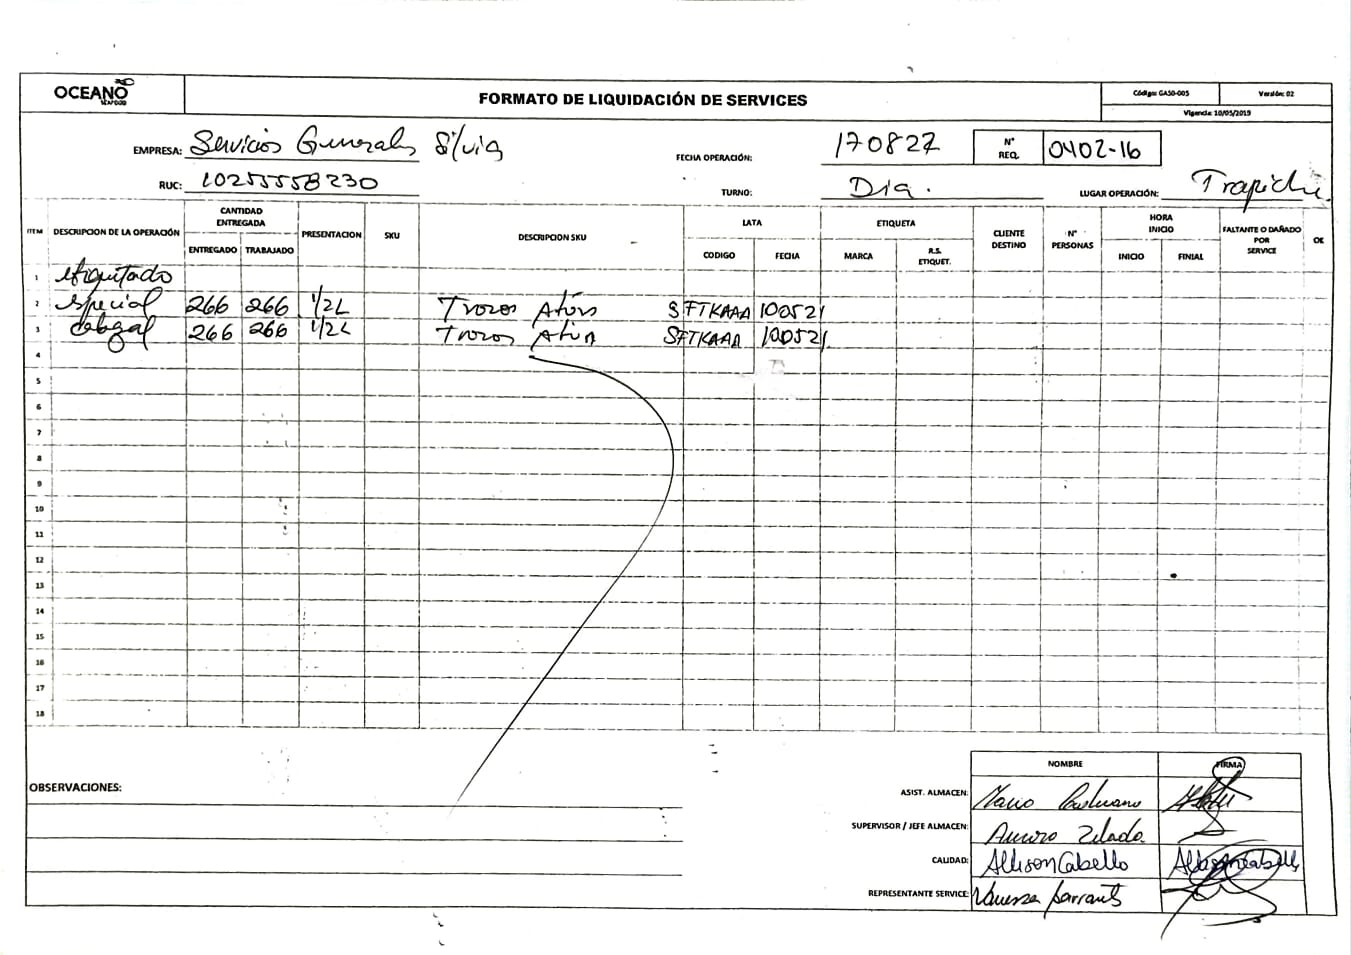 OCEANO
SEAFOOD
FORMATO DE LIQUIDACIÓN DE SERVICES
Código: GA50-005
Versión: 02
Vigencia: 10/05/2019
EMPRESA: Servicios Generales Silvia
FECHA OPERACIÓN: 170822
N° REQ. 0402-16
RUC: 10255558230
TURNO: Dia.
LUGAR OPERACIÓN: Trapiche
ITEM DESCRIPCION DE LA OPERACIÓN CANTIDAD ENTREGADA ENTREGADO TRABAJADO PRESENTACION SKU DESCRIPCION SKU LATA CODIGO FECHA ETIQUETA MARCA R.S. ETIQUET. CLIENTE DESTINO N° PERSONAS HORA INICIO INICIO FINIAL FALTANTE O DAÑADO POR SERVICE
1 etiquetado
2 especial 266 266 1/2L Trozos Atún SFTKAAA 100521
3 266 266 1/2L Trozos Atún SFTKAAA 100521
4
5
6
7
8
9
10
11
12
13
14
15
16
17
18
OBSERVACIONES:
NOMBRE FIRMA
ASIST. ALMACEN:
SUPERVISOR / JEFE ALMACEN:
CALIDAD: Allison Cabello
REPRESENTANTE SERVICE: Vanessa